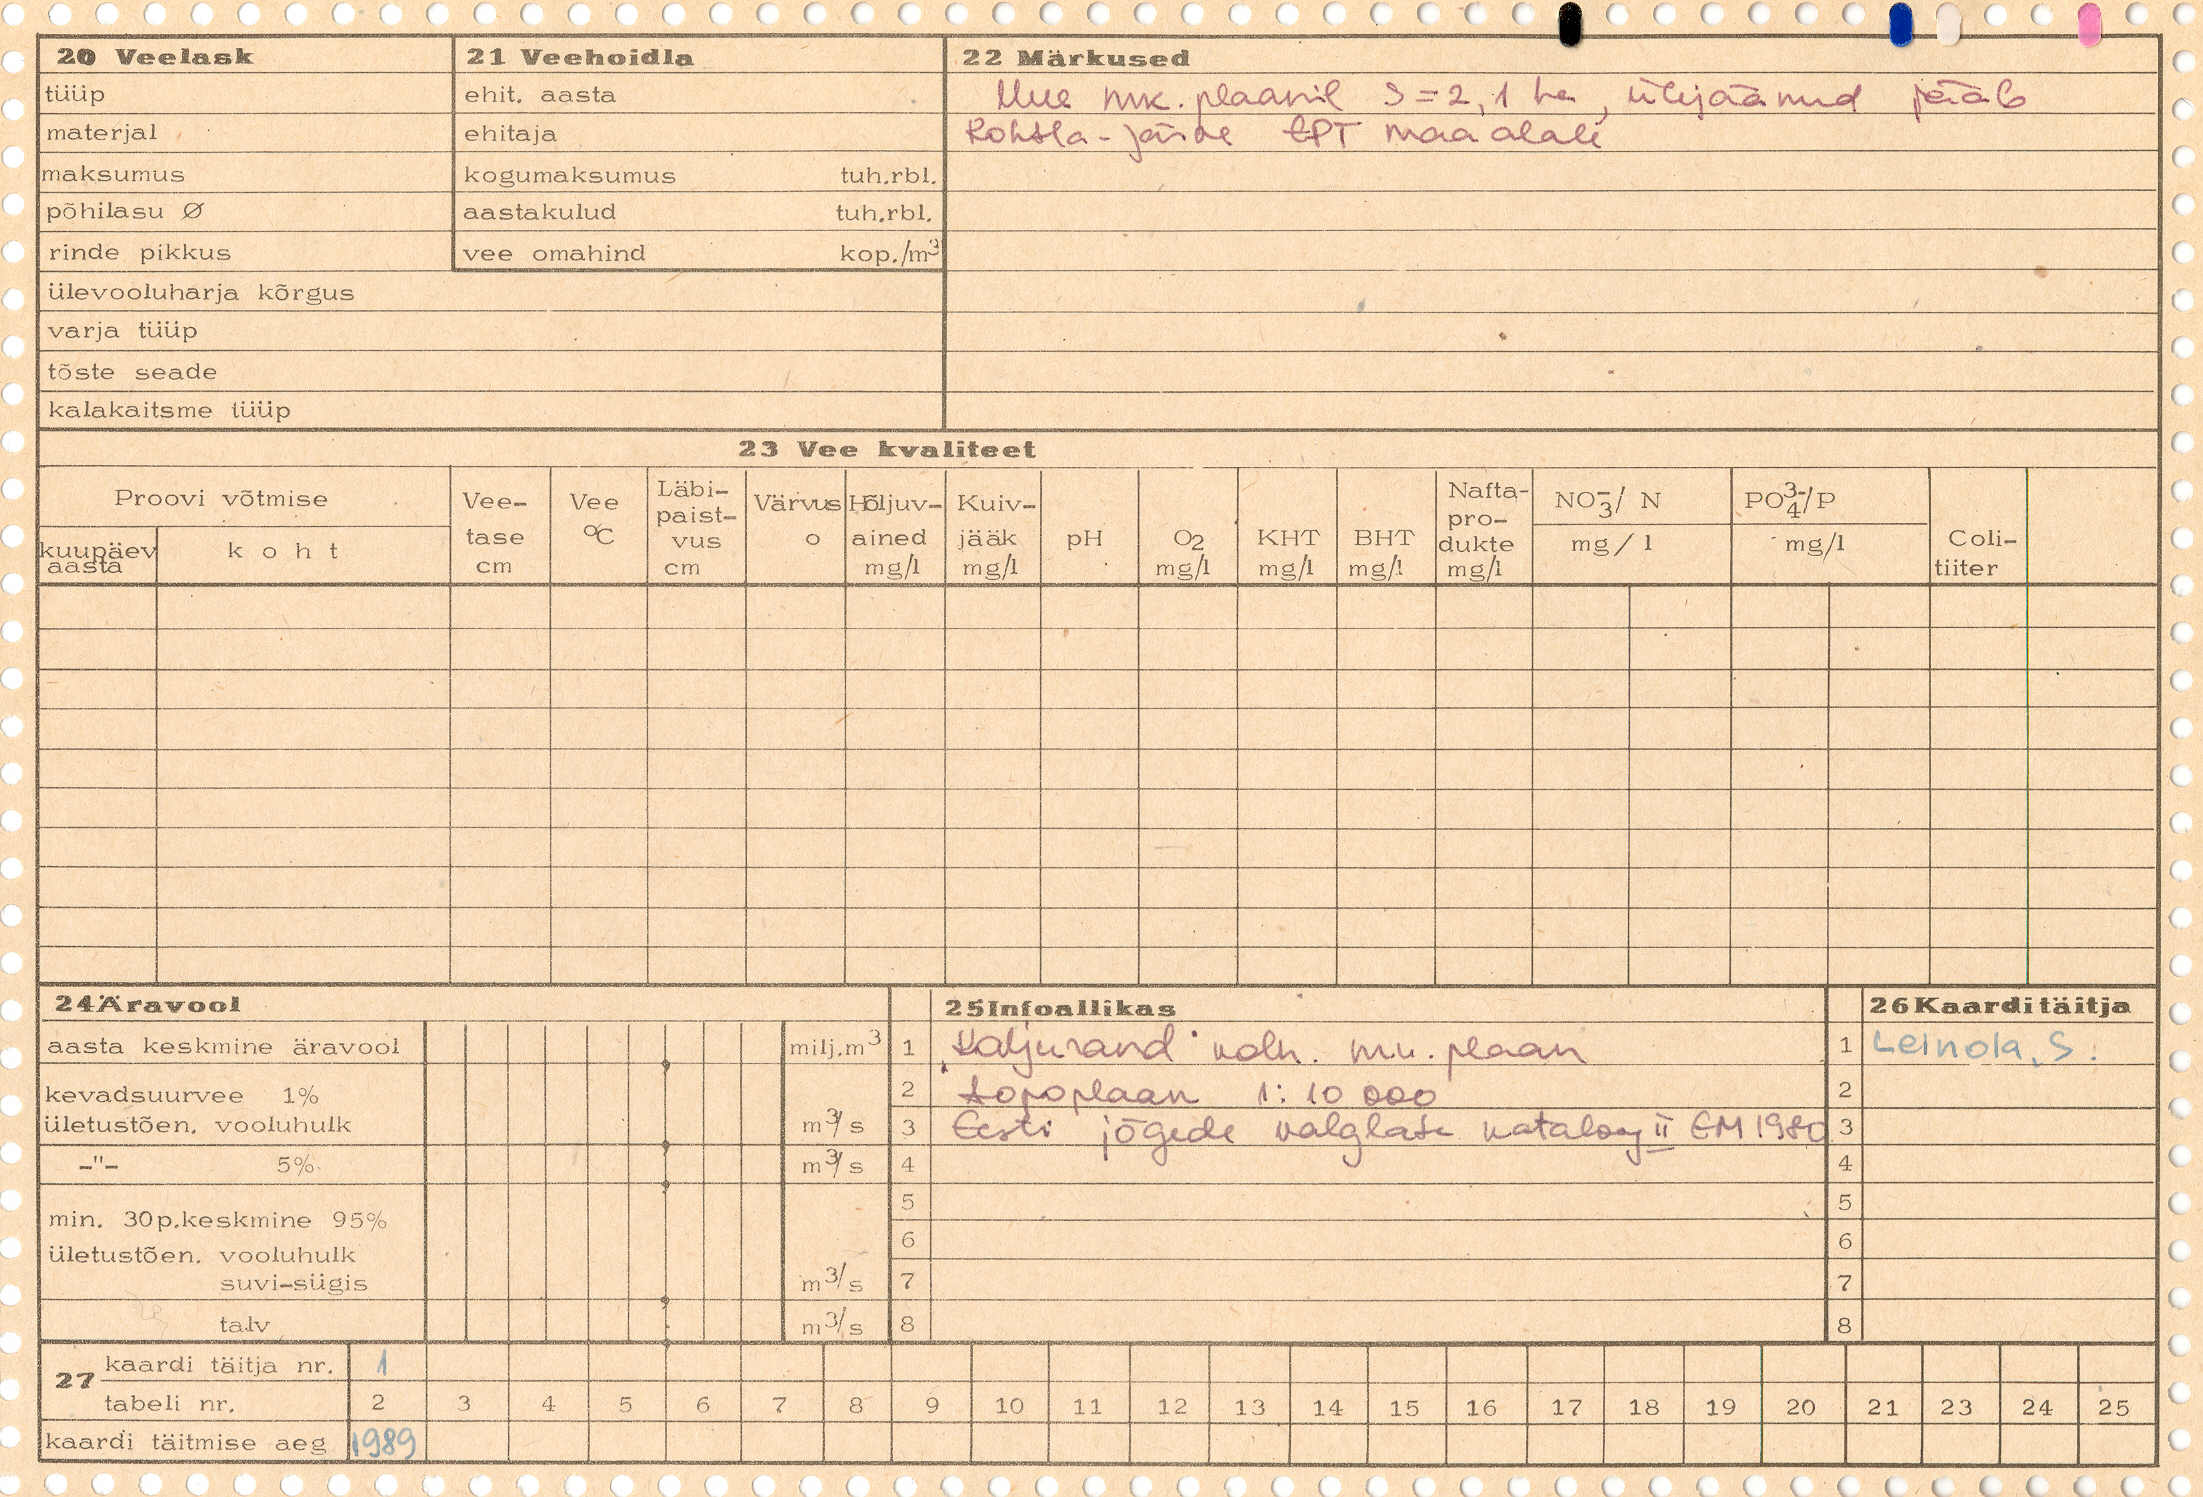 20 Veelask
tüüp
materjal
maksumus
põhilasu Ø
rinde pikkus
ülevooluharja kõrgus
varja tüüp
tõste seade
kalakaitsme tüüp
21 Veehoidla
ehit. aasta
ehitaja
kogumaksumus tuh.rbl.
aastakulud tuh.rbl.
vee omahind kop./m³
22 Märkused
mk. plaanil S = 2,1 ha, ülejäänud jääb
Kohtla-Järve EPT maa alale
23 Vee kvaliteet
Proovi võtmise
kuupäev aasta
koht
Vee-
tase
cm
Vee
°C
Läbi-
paist-
vus
cm
Värvus
o
Hõljuv-
ained
mg/l
Kuiv-
jääk
mg/l
pH
O2
mg/l
KHT
mg/l
BHT
mg/l
Nafta-
pro-
dukte
mg/l
NO3⁻/ N
mg/l
PO4³⁻/P
mg/l
Coli-
tiiter
24 Äravool
aasta keskmine äravool milj.m³
kevadsuurvee 1%
ületustõen. vooluhulk m³/s
-"- 5% m³/s
min. 30p.keskmine 95%
ületustõen. vooluhulk
suvi-sügis m³/s
talv m³/s
25 Infoallikas
1 "Kaljurand" kolh. m.k. plaan
2 Topoplaan 1:10 000
3 Eesti jõgede valglate kataloog II EM 1980
4
5
6
7
8
26 Kaarditäitja
1 Leinola, S.
2
3
4
5
6
7
8
27 kaardi täitja nr. 1
tabeli nr. 2 3 4 5 6 7 8 9 10 11 12 13 14 15 16 17 18 19 20 21 23 24 25
kaardi täitmise aeg 1989